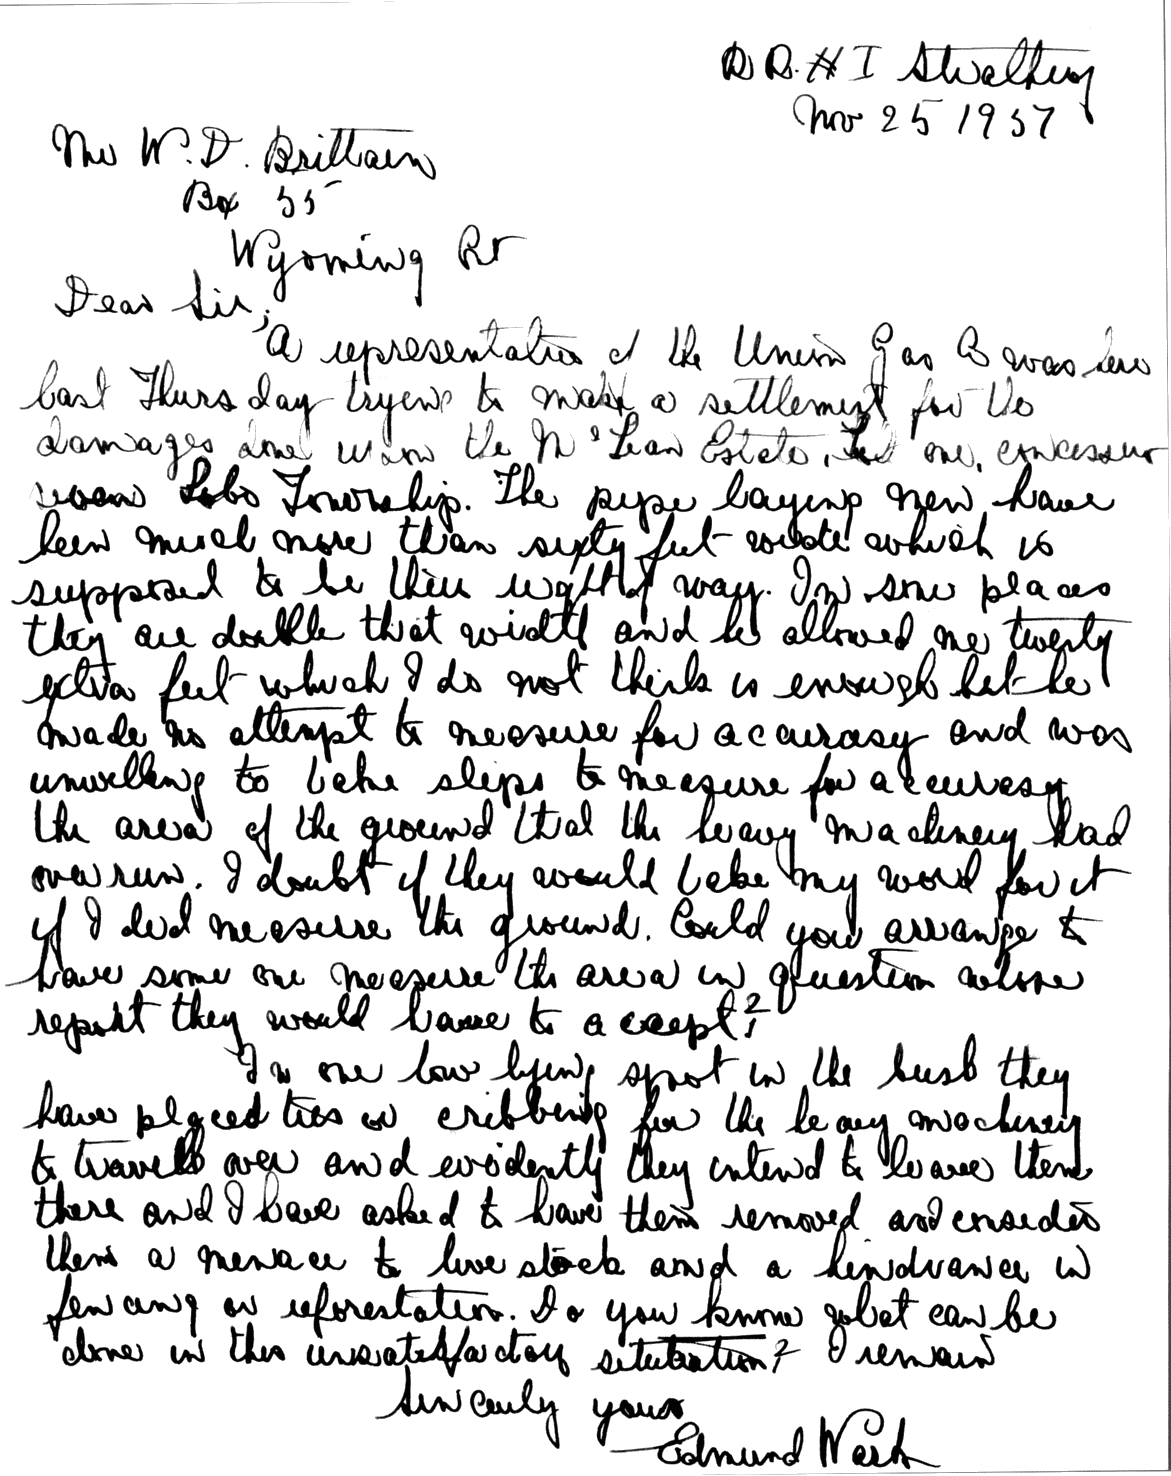 R.R. # 1 Strathroy
Nov 25 1957
Mr W. D. Brittain
Box 55
Wyoming Ont
Dear Sir,
A representative of the Union Gas Co was here
last Thursday trying to make a settlement for the
damages done upon the McLean Estate, Lot one, concession
seven Lobo Township. The pipe laying men have
been much more than sixty feet wide which is
supposed to be their right of way. In some places
they are double that width and he allowed me twenty
extra feet which I do not think is enough but he
made no attempt to measure for accuracy and was
unwilling to take steps to measure for accuracy
the area of the ground that the heavy machinery had
over run. I doubt if they would take my word for it
if I did measure the ground. Could you arrange to
have some one measure the area in question whose
report they would have to accept?
In one low lying spot in the bush they
have placed ties or cribbing for the heavy machinery
to travel over and evidently they intend to leave them
there and I have asked to have them removed and consider
them a menace to live stock and a hindrance in
fencing or reforestation. Do you know what can be
done in this unsatisfactory situation? I remain
Sincerely yours
Edmund